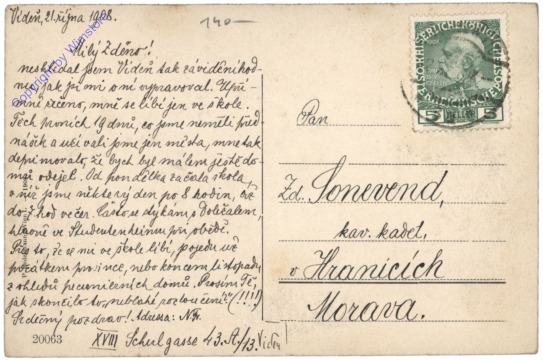 Vídeň, 21. října 1908.
140—
Milý Zděno!
neshledal jsem Vídeň tak záviděníhod-
nou, jak jsi mi o ní vypravoval. Upřím-
ně řečeno, mně se líbí jen ve škole.
Těch prvních 19 dnů, co jsme neměli před-
nášek a učívali jsme jen města, mne tak
deprimovalo, že bych byl málem ještě do-
mů odejel. Od pondělka začala škola,
v níž jsme některý den po 8 hodin, až
do 7 hod večer. Často se stýkám s Doležalem,
hlavně ve Studentenheimu při obědě.
Pro to, že se mi ve škole líbí, pojedu už
počátkem prosince, nebo koncem listopadu
z ohledů pecunierních domů. Prosím Tě,
jak skončilo to neblahé rozloučení? (!!!)
Srdečný pozdrav! Adressa: N.F.
XVIII Schulgasse 43. A/13. Vídeň
20063
5 HELLER 5
Pan
Zd. Sonevend,
kav. kadet,
v Hranicích
Morava.